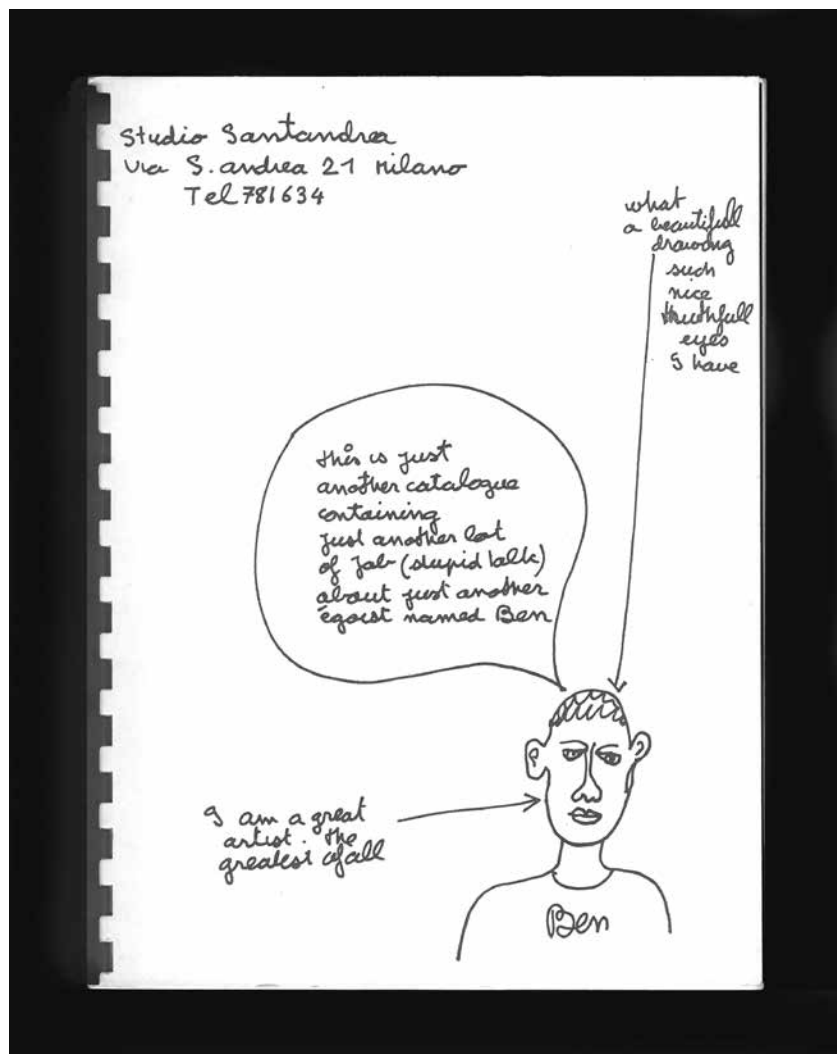 Studio Santandrea
Via S. andrea 21 Milano
Tel 781634
what
a beautiful
drawing
such
nice
thruthfull
eyes
I have
this is just
another catalogue
containing
just another lot
of jab (stupid talk)
about just another
égoist named Ben
I am a great
artist. the
greatest of all
Ben